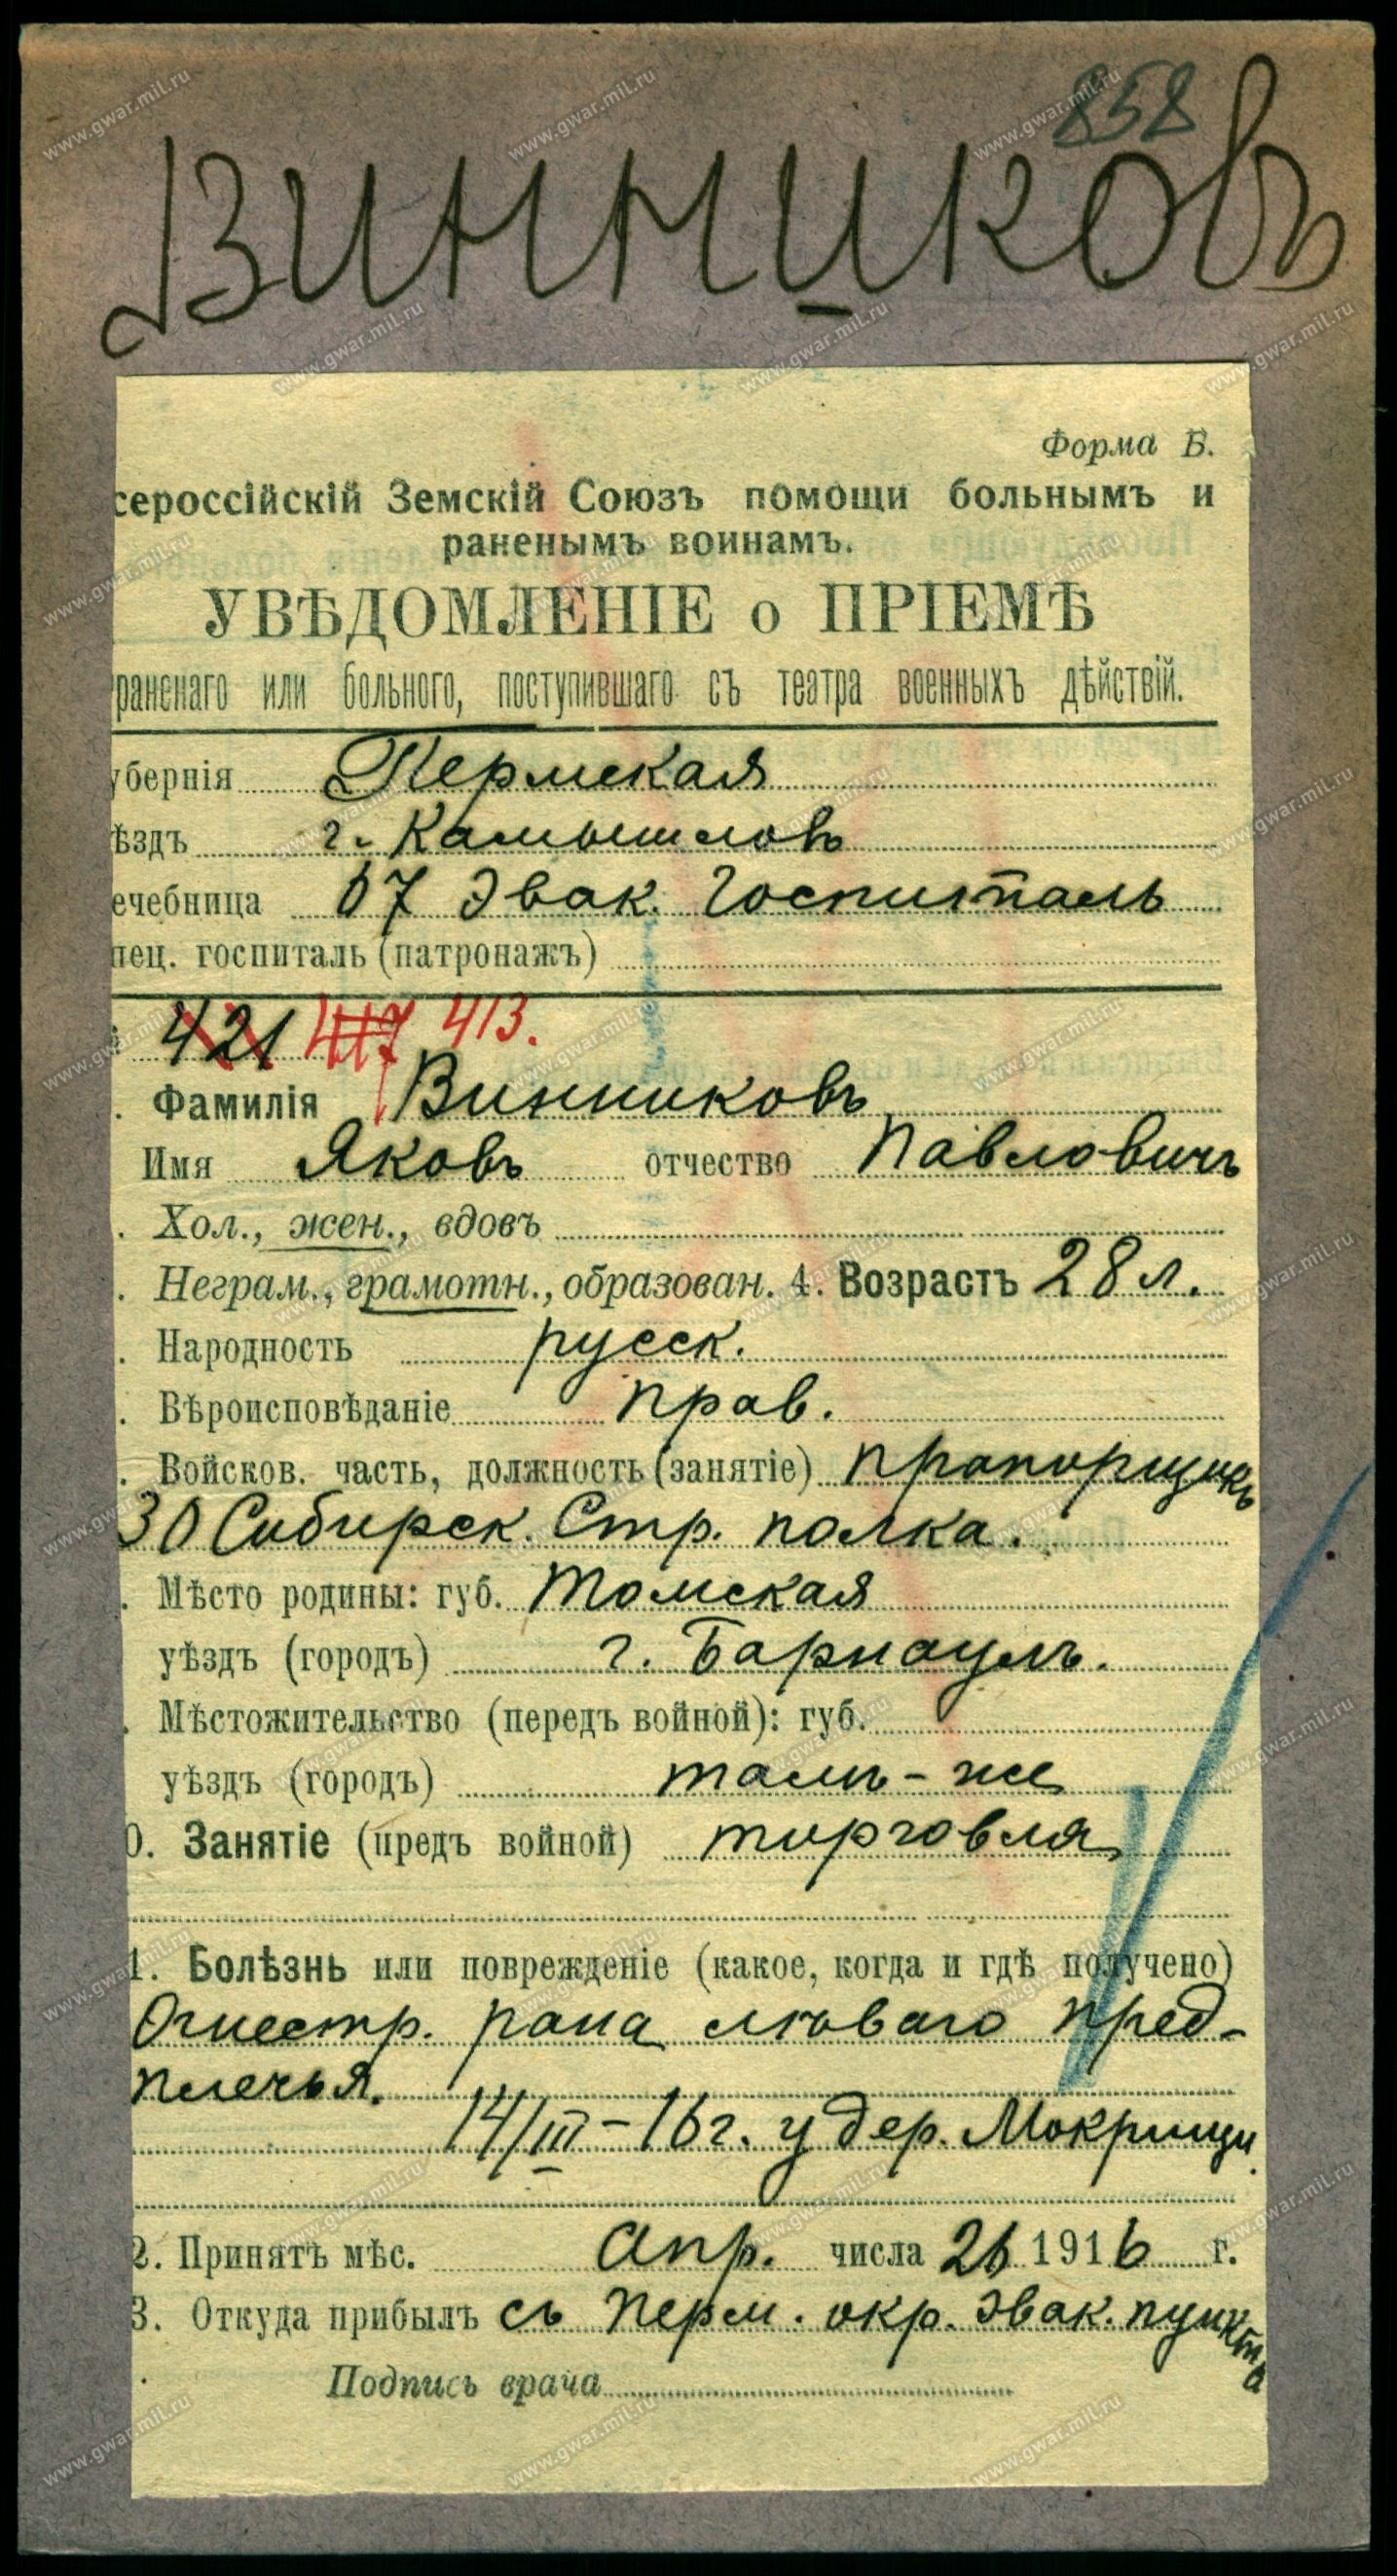 858
Винниковъ
Форма Б.
сероссійскій Земскій Союзъ помощи больнымъ и
раненымъ воинамъ.
УВѢДОМЛЕНІЕ о ПРІЕМѢ
раненаго или больного, поступившаго съ театра военныхъ дѣйствій.
убернія Пермская
ѣздъ г. Камышловъ
ечебница 67 Эвак. Госпиталь
пец. госпиталь (патронажъ)
421 417 413.
. Фамилія Винниковъ
Имя Яковъ отчество Павловичъ
. Хол., жен., вдовъ
. Неграм., грамотн., образован. 4. Возрастъ 28 л.
. Народность русск.
. Вѣроисповѣданіе прав.
. Войсков. часть, должность (занятіе) прапорщикъ
30 Сибирск. Стр. полка.
. Мѣсто родины: губ. Томская
уѣздъ (городъ) г. Барнаулъ.
. Мѣстожительство (передъ войной): губ.
уѣздъ (городъ) тамъ-же
0. Занятіе (предъ войной) торговля
1. Болѣзнь или поврежденіе (какое, когда и гдѣ получено)
Огнестр. рана лѣваго пред-
плечья.
14/III-16 г. у дер. Мокрицы.
2. Принятъ мѣс. Апр. числа 26 1916 г.
3. Откуда прибылъ съ Перм. окр. эвак. пункта
Подпись врача
www.gwar.mil.ru